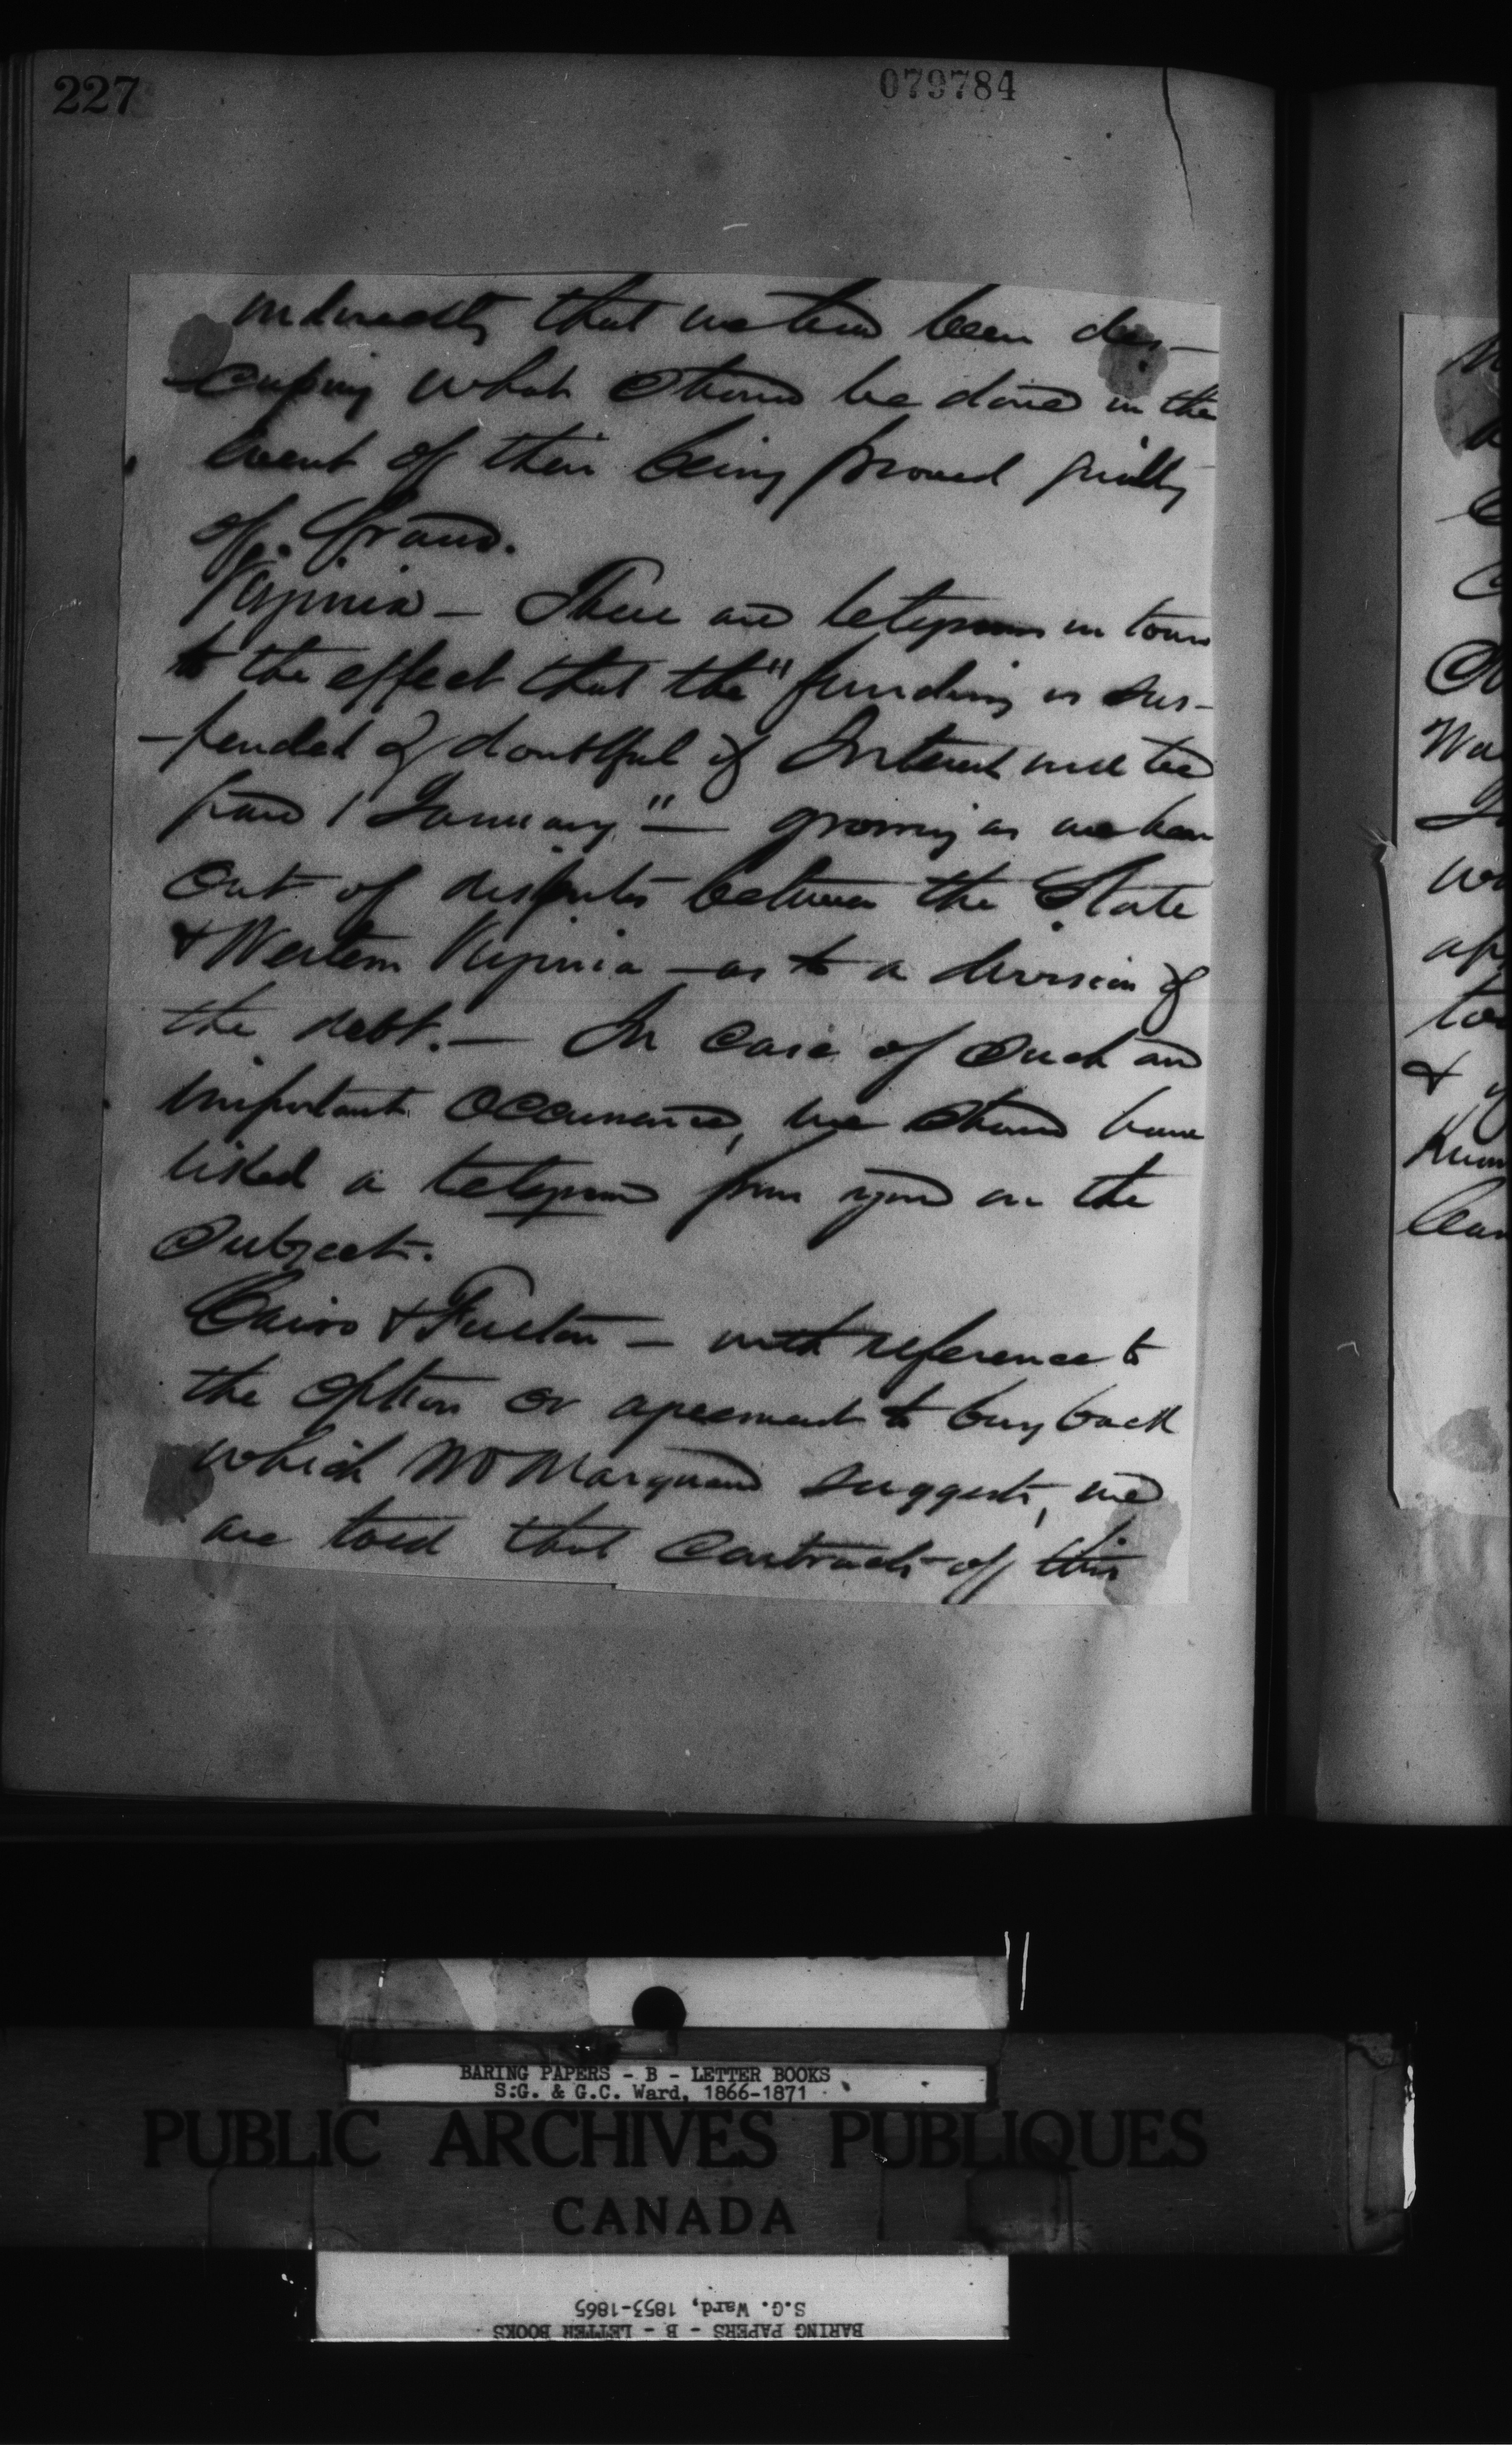 227
079784
indirectly that we had been dis-
-cussing what should be done in the
event of their being proved guilty
of fraud.
Virginia - There are telegrams in town
to the effect that the "funding is sus-
-pended & doubtful if Interest will be
paid 1 January" - growing as we hear
out of disputes between the State
& Western Virginia - as to a division of
the debt. - In case of such an
important occurrence, we should have
liked a telegram from you on the
subject.
Cairo & Fulton - with reference to
the option or agreement to buy back
which Mr Marquand suggests, we
are told that contracts of this
BARING PAPERS - B - LETTER BOOKS
S.G. & G.C. Ward, 1866-1871
PUBLIC ARCHIVES PUBLIQUES
CANADA
BARING PAPERS - B - LETTER BOOKS
S.G. Ward, 1853-1865